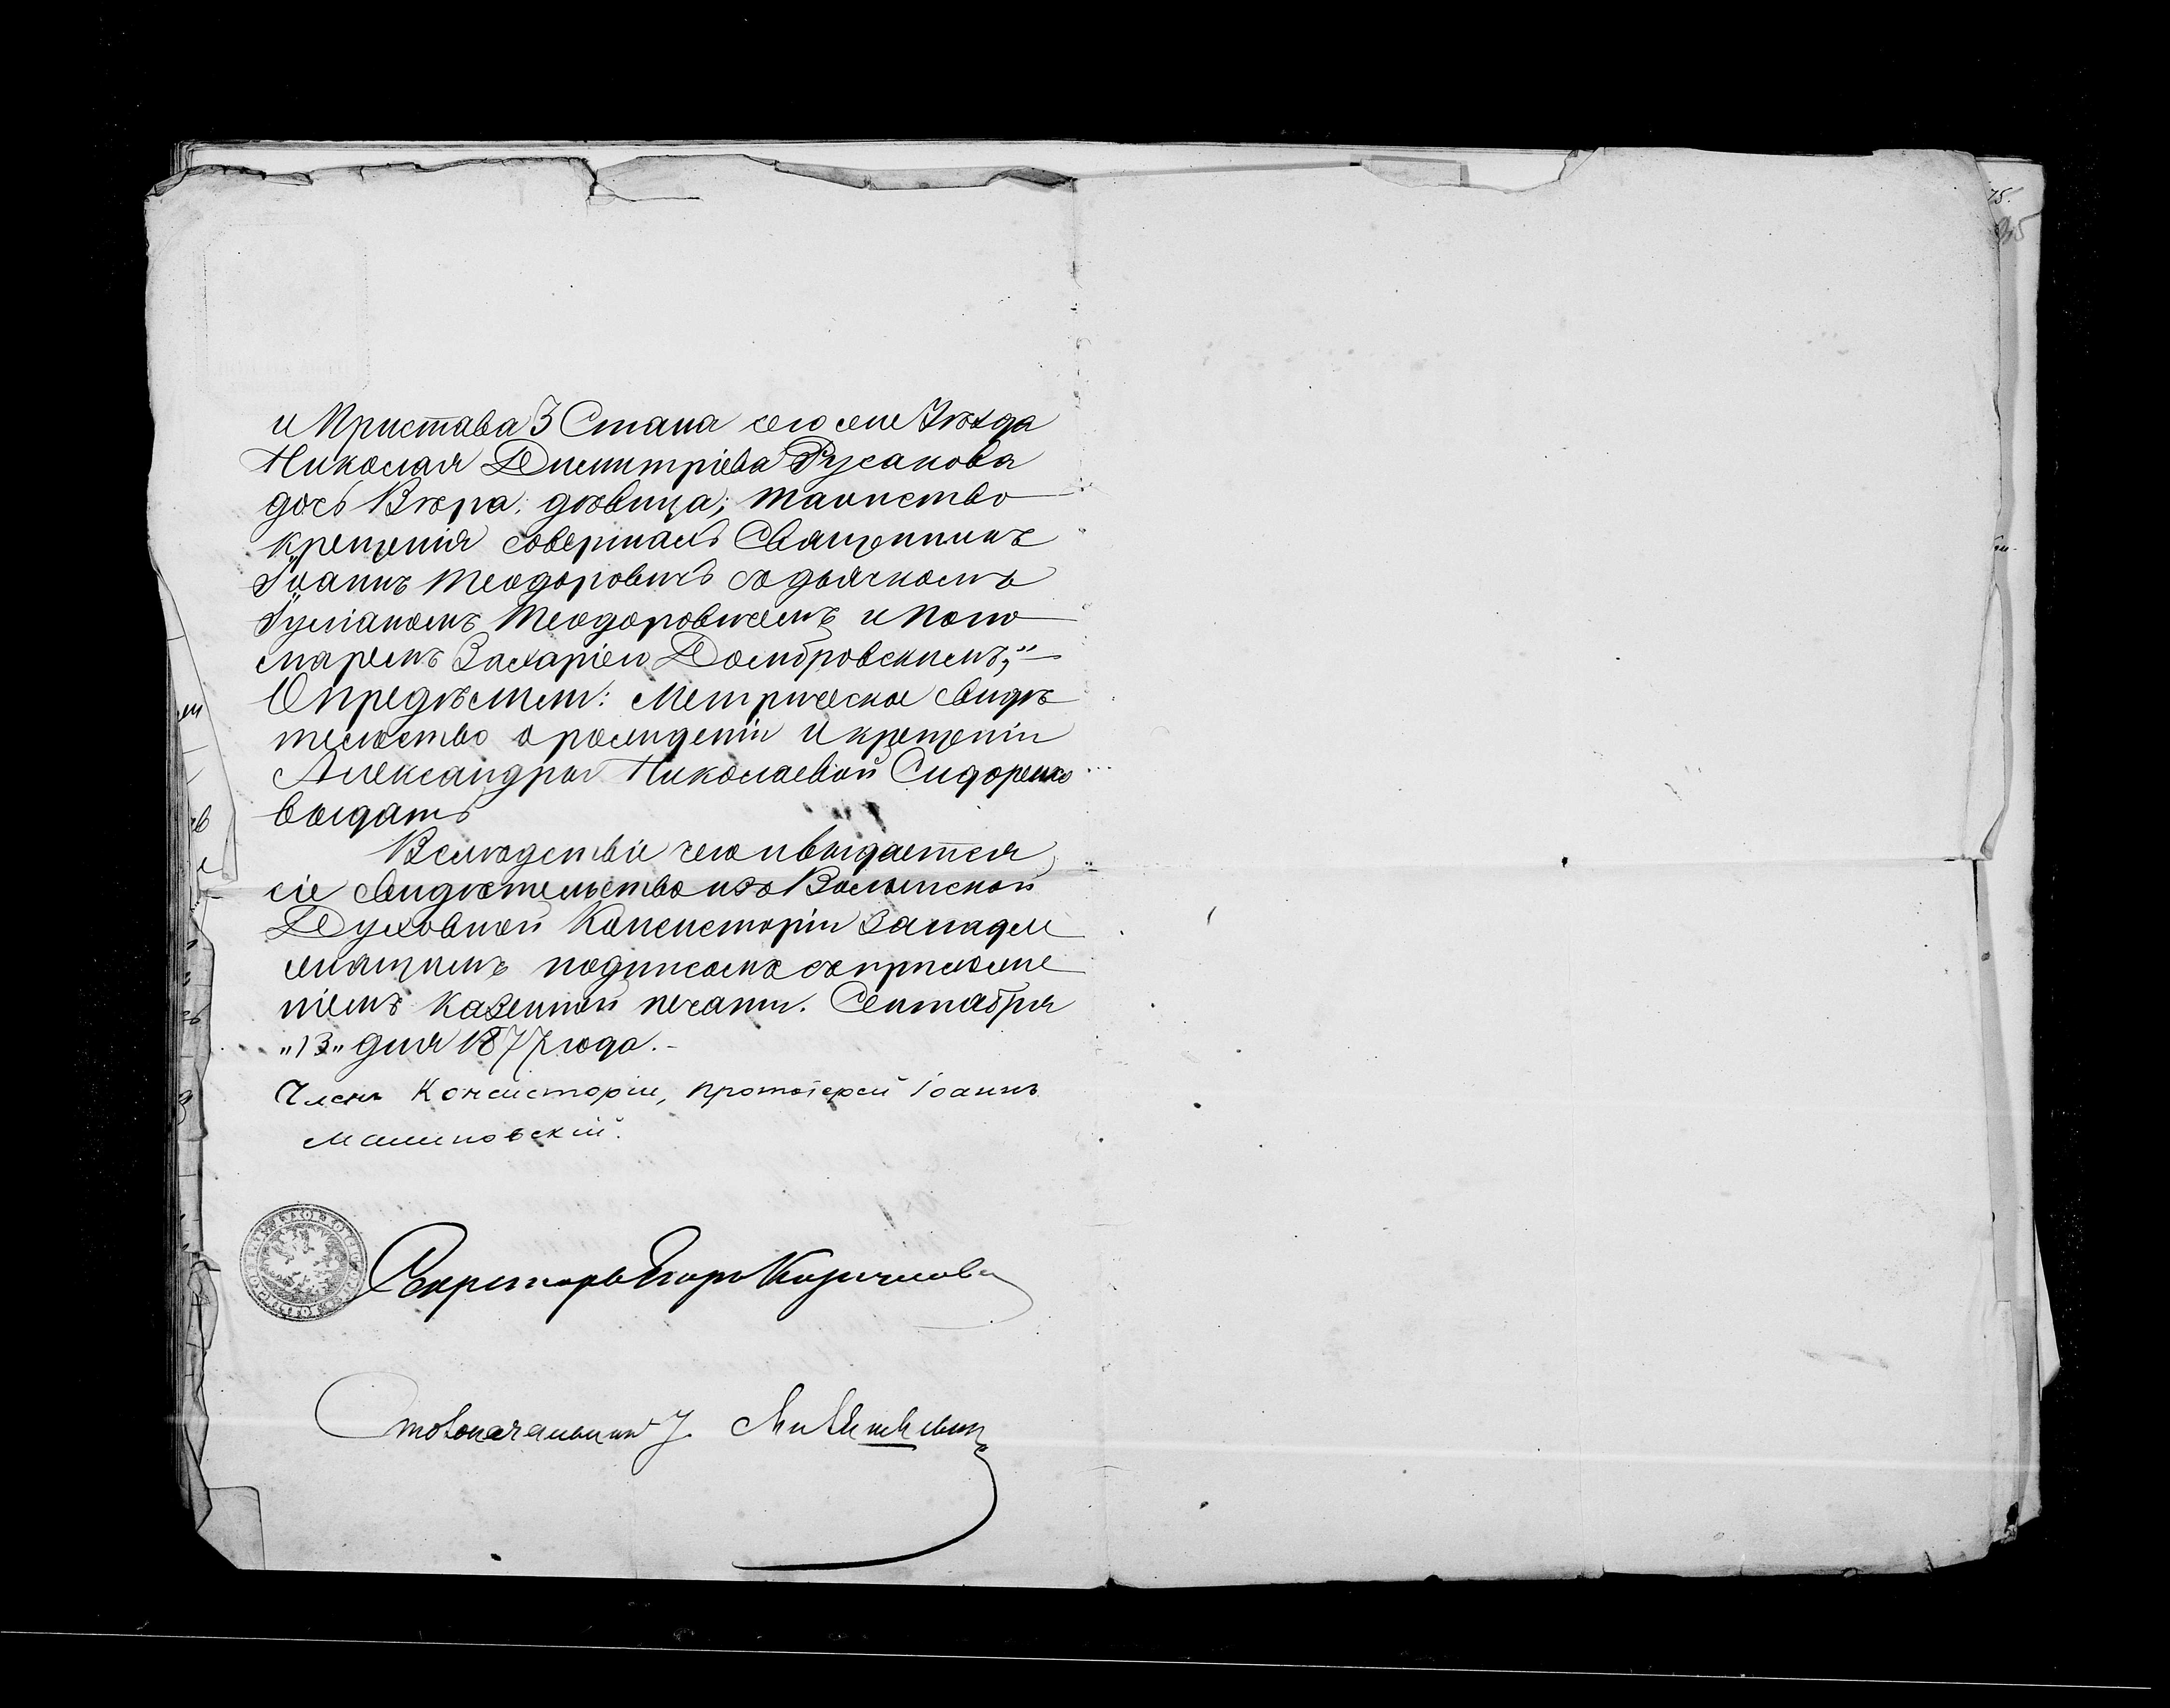 и Пристава 3 Стана сего же Уѣзда
Николая Димитріева Русакова
дочь Вѣра, дѣвица; таинство
крещенія совершалъ Священникъ
Іоаннъ Теодоровичъ съ дьячкомъ
Іуліаномъ Теодоровичемъ и поно
маремъ Захаріею Домбровскимъ;"
Опредѣлили: Метрическое свидѣ
тельство о рожденіи и крещеніи
Александры Николаевой Сидоренко
выдать
Вслѣдствіе чего и выдается
сіе свидѣтельство изъ Волынской
Духовной Консисторіи за надле
жащимъ подписомъ съ приложе
ніемъ казенной печати. Сентября
„13" дня 1877 года.
Членъ Консисторіи, протоіерей Іоаннъ
Малиновскій.
Секретарь
Столоначальникъ
75.